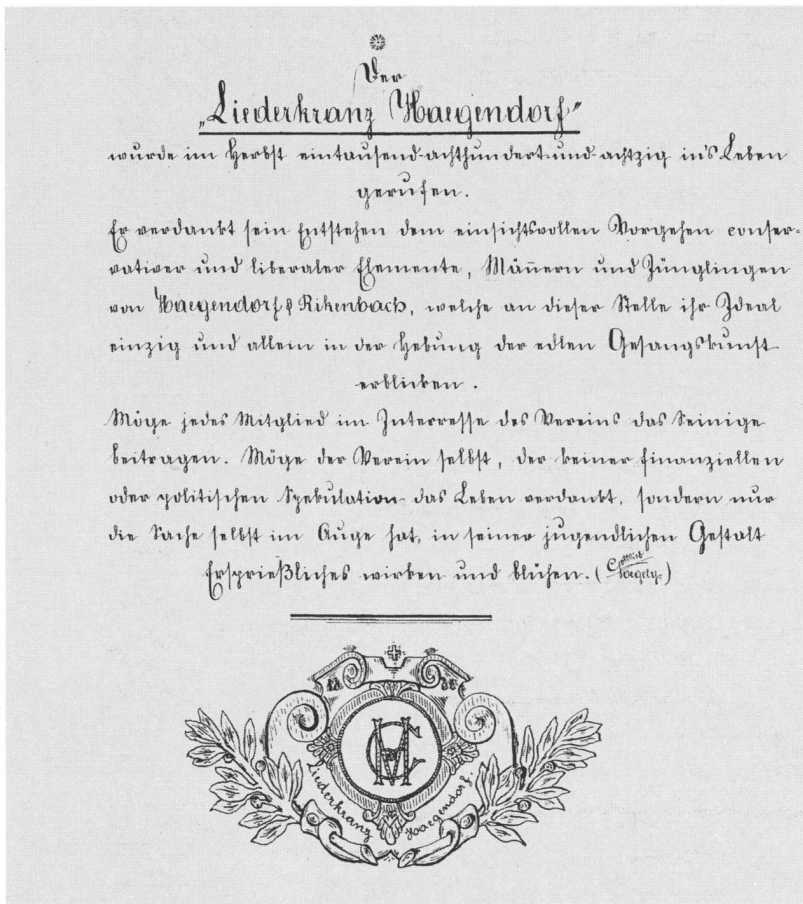 Der
„Liederkranz Haegendorf"
wurde im Herbst eintausend-achthundert-und-achtzig in's Leben
gerufen.
Er verdankt sein Entstehen dem einsichtsvollen Vorgehen conser-
vativer und liberaler Elemente, Män̄ern und Jünglingen
von Haegendorf & Rikenbach, welche an dieser Stelle ihr Ideal
einzig und allein in der Hebung der edlen Gesangskunst
erblicken.
Möge jedes Mitglied im Interresse des Vereins das Seinige
beitragen. Möge der Verein selbst, der keiner finanziellen
oder politischen Spekulation das Leben verdankt, sondern nur
die Sache selbst im Auge hat, in seiner jugendlichen Gestalt
Ersprießliches wirken und blühen. (Gottlieb
Voegely.)
Liederkranz Haegendorf.